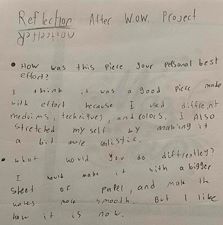 Reflection After W.O.W. Project
Reflection
• How was this piece your pelsonal best
effort?
I think it was a good piece made
with effort because I used different
mediums, techniques, and colors. I Also
stretched my self by making it
a bit more realistic.
• what would you do differently?
I would make it with a bigger
sheet of paper, and make the
more smooth. But I like
how it is now.